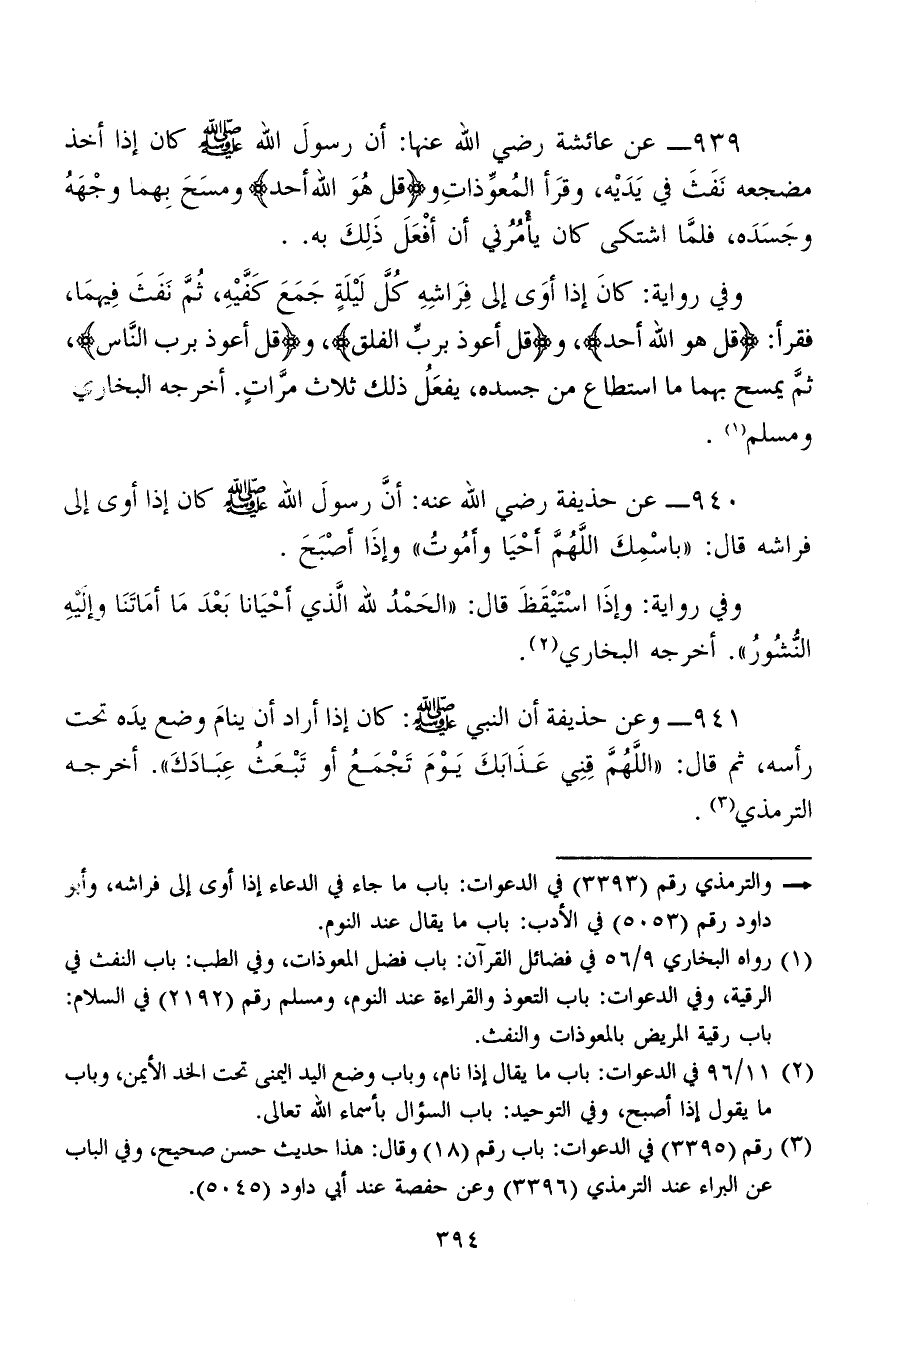 ٩٣٩ــ عن عائشة رضي الله عنها: أن رسولَ الله ﷺ كان إذا أخذ
مضجعه نَفَثَ في يَدَيْه، وقرَأ المُعوِّذاتِ و﴿قل هُوَ الله أحد﴾ ومسَحَ بِهما وجْهَهُ
وجَسَدَه، فلمَّا اشتكى كان يأْمُرُني أن أفْعَلَ ذَلِكَ به. .
وفي رواية: كانَ إذا أوَى إلى فِرَاشِهِ كُلَّ لَيْلَةٍ جَمَعَ كَفَّيْهِ، ثُمَّ نَفَثَ فِيهِمَا،
فقرأ: ﴿قل هو الله أحد﴾، و﴿قل أعوذ بربِّ الفلق﴾، و﴿قل أعوذ برب النَّاس﴾،
ثمَّ يمسح بهما ما استطاع من جسده، يفعَلُ ذلك ثلاث مرَّاتٍ. أخرجه البخاري
ومسلم(١) .
٩٤٠ــ عن حذيفة رضي الله عنه: أنَّ رسولَ الله ﷺ كان إذا أوى إلى
فراشه قال: «باسْمِكَ اللَّهُمَّ أحْيَا وأمُوتُ» وإذَا أصْبَحَ .
وفي رواية: وإذَا اسْتَيْقَظَ قال: «الحَمْدُ لله الَّذي أحْيَانا بَعْدَ مَا أمَاتَنَا وإلَيْهِ
النُّشُورُ». أخرجه البخاري(٢).
٩٤١ــ وعن حذيفة أن النبي ﷺ: كان إذا أراد أن ينامَ وضع يدَه تحت
رأسه، ثم قال: «اللَّهُمَّ قِنِي عَذَابَكَ يَوْمَ تَجْمَعُ أو تَبْعَثُ عِبَادَكَ». أخرجه
الترمذي(٣) .
← والترمذي رقم (٣٣٩٣) في الدعوات: باب ما جاء في الدعاء إذا أوى إلى فراشه، وأبو
داود رقم (٥٠٥٣) في الأدب: باب ما يقال عند النوم.
(١) رواه البخاري ٥٦/٩ في فضائل القرآن: باب فضل المعوذات، وفي الطب: باب النفث في
الرقية، وفي الدعوات: باب التعوذ والقراءة عند النوم، ومسلم رقم (٢١٩٢) في السلام:
باب رقية المريض بالمعوذات والنفث.
(٢) ٩٦/١١ في الدعوات: باب ما يقال إذا نام، وباب وضع اليد اليمنى تحت الخد الأيمن، وباب
ما يقول إذا أصبح، وفي التوحيد: باب السؤال بأسماء الله تعالى.
(٣) رقم (٣٣٩٥) في الدعوات: باب رقم (١٨) وقال: هذا حديث حسن صحيح، وفي الباب
عن البراء عند الترمذي (٣٣٩٦) وعن حفصة عند أبي داود (٥٠٤٥).
٣٩٤